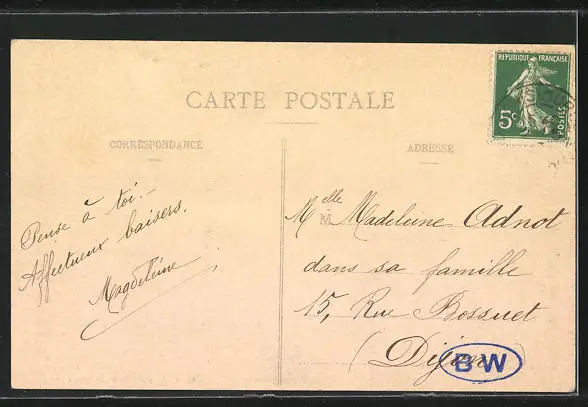 CARTE POSTALE
CORRESPONDANCE
ADRESSE
REPUBLIQUE FRANÇAISE
5c
POSTES
Pense à toi.-
Affectueux baisers.
Magdeleine
Melle Madeleine Adnot
M
dans sa famille
15, Rue Bossuet
(Dijon)
BW